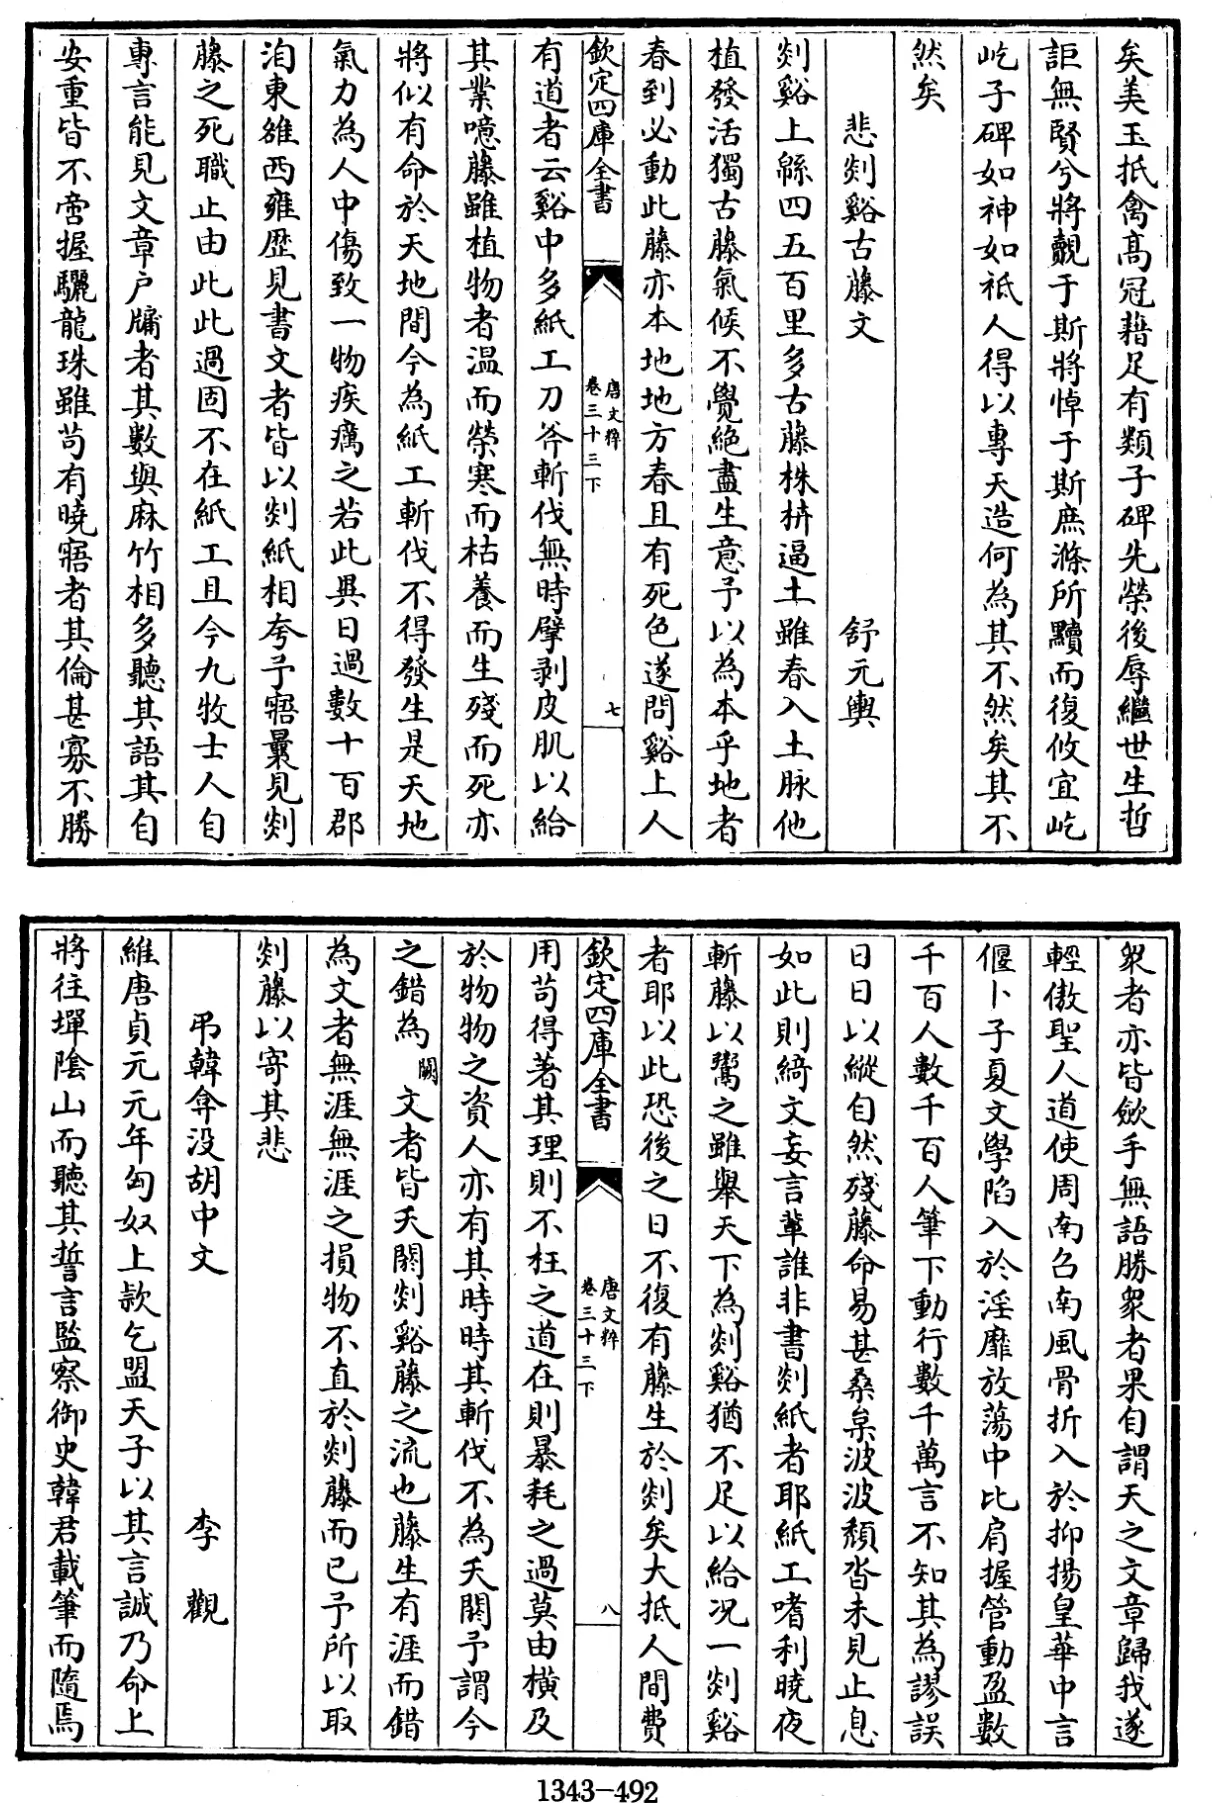 矣美玉抵禽高冠藉足有類子碑先榮後辱繼世生哲
詎無賢兮將覿于斯將悼于斯庶滌所黷而復攸宜屹
屹子碑如神如祇人得以專天造何為其不然矣其不
然矣
悲剡谿古藤文 舒元輿
剡谿上緜四五百里多古藤株枿逼土雖春入土脉他
植發活獨古藤氣候不覺絶盡生意予以為本乎地者
春到必動此藤亦本地地方春且有死色遂問谿上人
欽定四庫全書 唐文粹 卷三十三下 七
有道者云谿中多紙工刀斧斬伐無時擘剥皮肌以給
其業噫藤雖植物者温而榮寒而枯養而生殘而死亦
將似有命於天地間今為紙工斬伐不得發生是天地
氣力為人中傷致一物疾癘之若此異日過數十百郡
洎東雒西雍歴見書文者皆以剡紙相夸予寤曩見剡
藤之死職止由此此過固不在紙工且今九牧士人自
專言能見文章户牖者其數與麻竹相多聽其語其自
安重皆不啻握驪龍珠雖苟有曉寤者其倫甚寡不勝
衆者亦皆歛手無語勝衆者果自謂天之文章歸我遂
輕傲聖人道使周南召南風骨折入於抑揚皇華中言
偃卜子夏文學陷入於淫靡放蕩中比肩握管動盈數
千百人數千百人筆下動行數千萬言不知其為謬誤
日日以縱自然殘藤命易甚桑枲波波頹沓未見止息
如此則綺文妄言輩誰非書剡紙者耶紙工嗜利曉夜
斬藤以鬻之雖舉天下為剡谿猶不足以給况一剡谿
者耶以此恐後之日不復有藤生於剡矣大抵人間費
欽定四庫全書 唐文粹 卷三十三下 八
用苟得著其理則不枉之道在則暴耗之過莫由横及
於物物之資人亦有其時時其斬伐不為夭閼予謂今
之錯為闕文者皆夭閼剡谿藤之流也藤生有涯而錯
為文者無涯無涯之損物不直於剡藤而已予所以取
剡藤以寄其悲
弔韓弇没胡中文 李觀
維唐貞元元年匈奴上欵乞盟天子以其言誠乃命上
將往墠陰山而聽其誓言監察御史韓君載筆而隨焉
1343-492